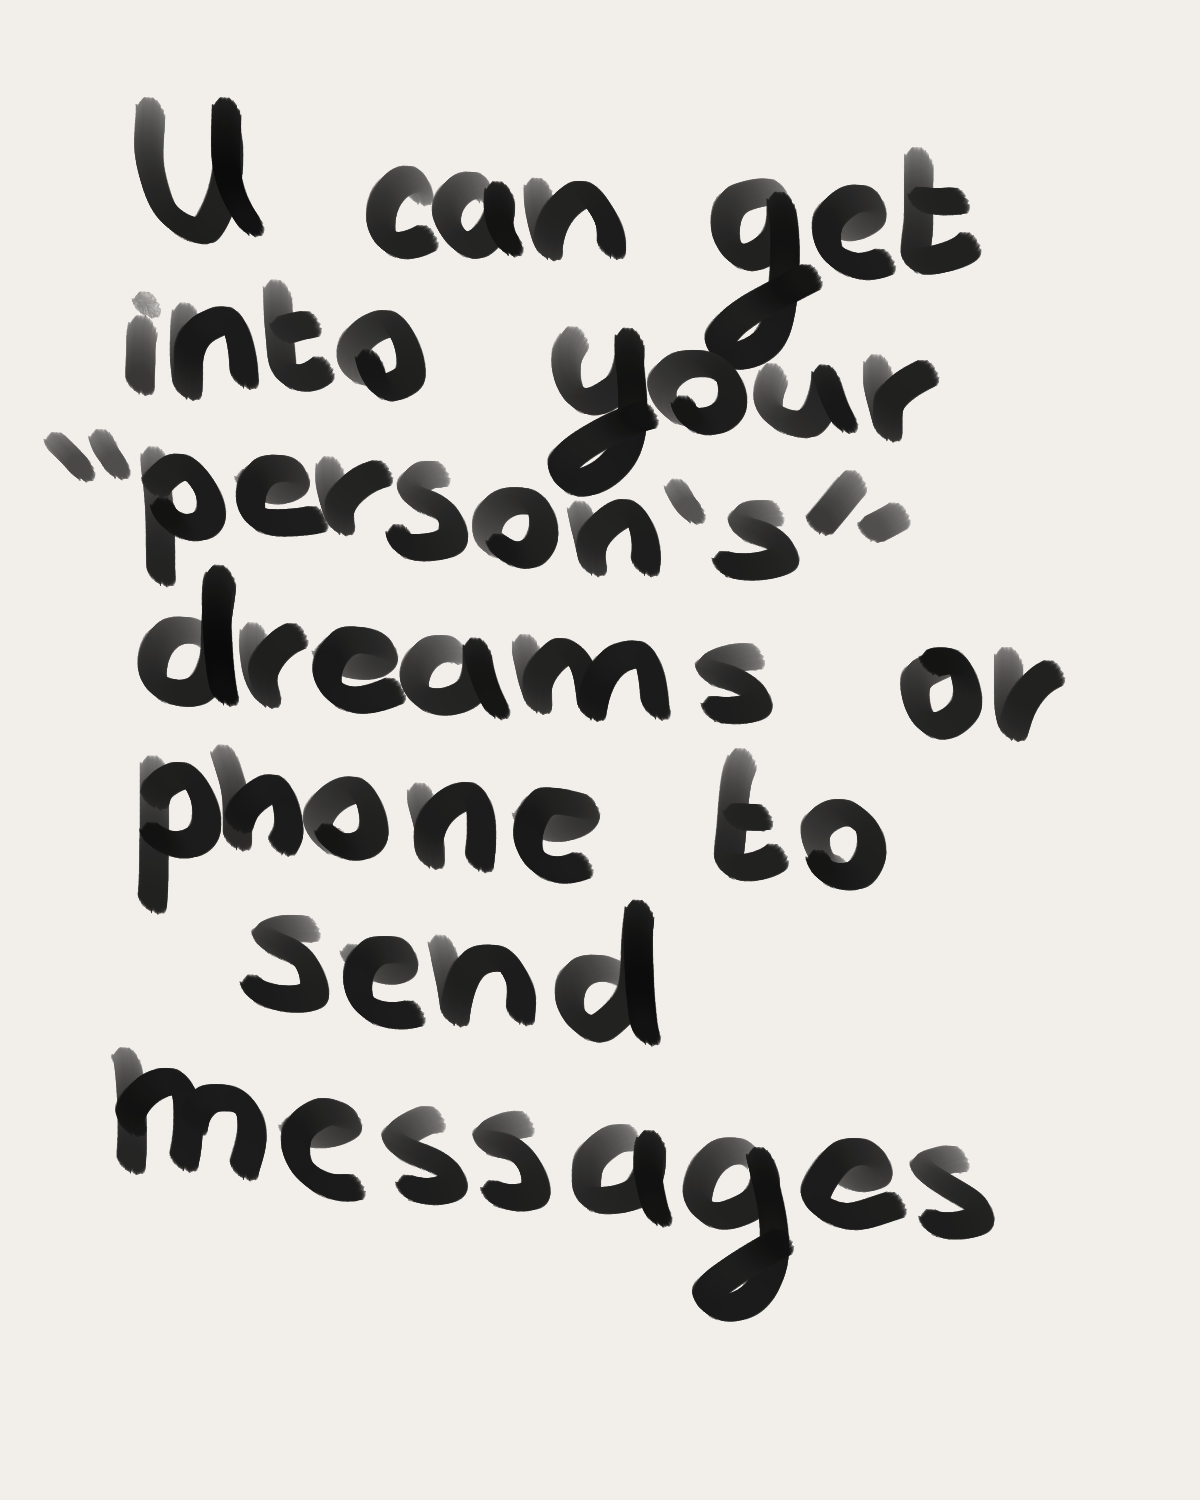 U can get
into your
"person's"
dreams or
phone to
send
messages